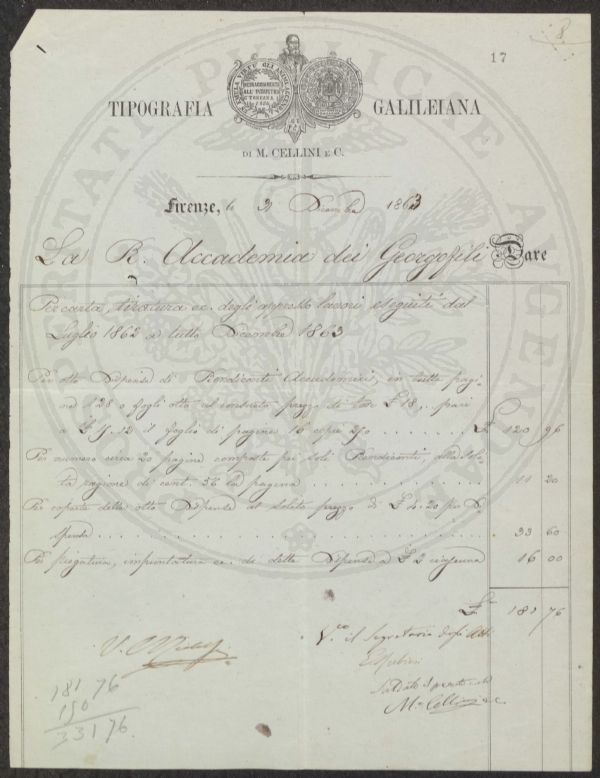 8
17
TIPOGRAFIA GALILEIANA
DI M. CELLINI E C.
Firenze, li 31 Dicembre 1863
La R. Accademia dei Georgofili Dare
Per carta, tiratura ec. degli appresso lavori eseguiti dal
Luglio 1862 a tutto Decembre 1863
Per otto Dispense di Rendiconti Accademici, in tutte pagi-
ne 128 o fogli otto al prezzo di Lire 18, pari
a £ 15.12 il foglio di pagine 16 copie 250 . . . . . . . £ 120 96
Per numero circa 20 pagine composte pei soli Rendiconti, alla soli-
ta ragione di cent. 56 la pagina . . . . . . . . . . 11 20
Per coperte delle otto Dispense al solito prezzo di £ 4.20 per Di-
spensa . . . . . . . . . . 33 60
Per piegatura, ec. di dette Dispense a £ 2 ciascuna 16 00
£ 181 76
V.o il Segretario degli Atti
Saldato
M. Cellini e C.
181 76
150
331 76.